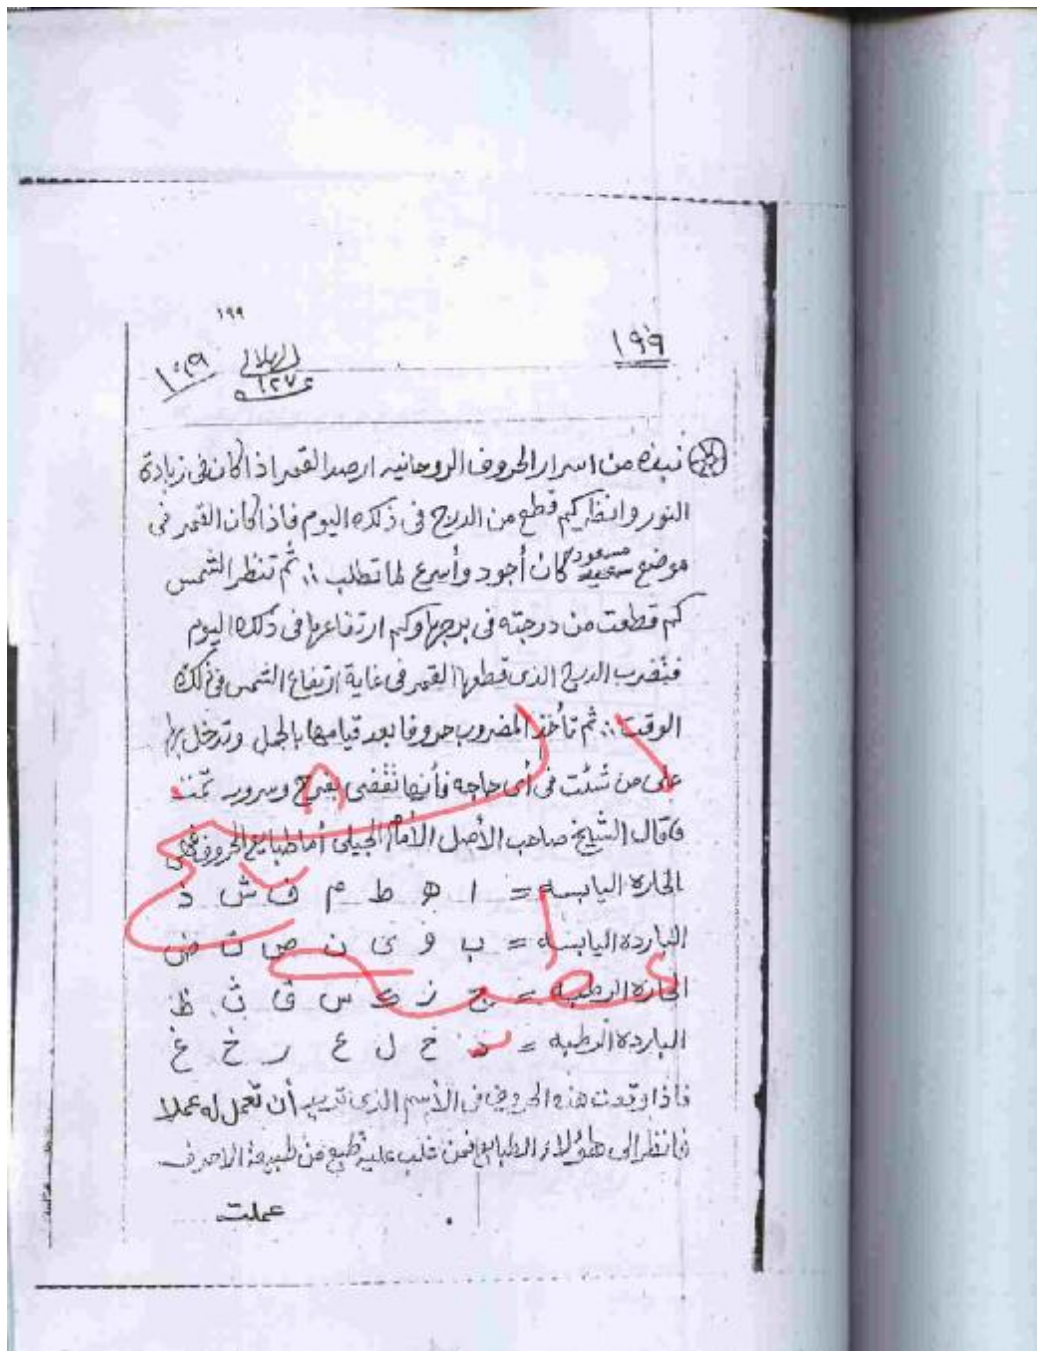 ١٩٩
١٩٩
الهلالي
١٢٧
نبذه من اسرار الحروف الروحانيه ارصد القمر اذا كان فى زيادة
النور وانظر كم قطع من الدرج فى ذلك اليوم فاذا كان القمر فى
موضع سعيد مسعود كان أجود وأسرع لما تطلب ؞ ثم تنظر الشمس
كم قطعت من درجته فى برجها وكم ارتفاعها فى ذلك اليوم
فتضرب الدرج الذى قطعها القمر فى غاية ارتفاع الشمس فى ذلك
الوقت ؞ ثم تأخذ المضروب حروفا بعد قيامها بالجمل وتدخل بها
على من شئت فى أى حاجه فأنها تقضى بفرح وسرور تمت
فقال الشيخ صاحب الأصل الأمام الجيلى أما طبايع الحروف فهى
الحاره اليابسه = ا ھ ط م ف ش ذ
البارده اليابسه = ب و ى ن ص ت ض
الحاره الرطبه = ج ز ك س ق ث ظ
البارده الرطبه = د ح ل ع ر خ غ
فاذا وقعت هذه الحروف فى الأسم الذى تريد أن تعمل له عملا
فانظر الى هؤلاء الطبايع فمن غلب عليه طبع من طبيعة الاحرف
عملت